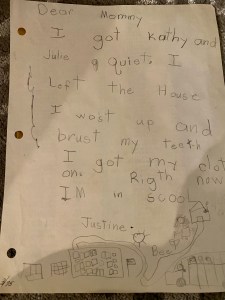 Dear Mommy
I got kathy and
Julie q quiet. I
Left the House
I wost up and
brust my teeth
I got my clot
on. Rigth now
IM in scool
Justine.